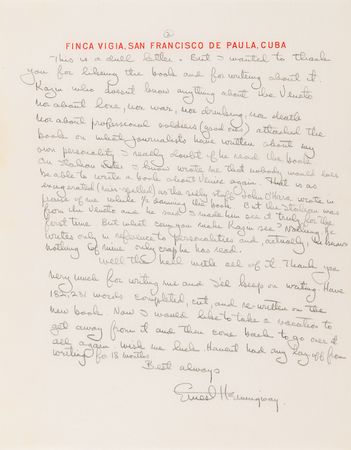 ②
FINCA VIGIA, SAN FRANCISCO DE PAULA, CUBA
This is a dull letter. But I wanted to thank
you for liking the book and for writing about it.
Kazin who doesn't know anything about the Veneto
nor about love, nor war, nor drinking, nor death
nor about professional soldiers (good ones) attacked the
book on what journalists have written about my
own personality. I really doubt if he read the book.
An Italian I know wrote me that nobody would ever
be able to write a book about Venice again. That is as
exagerated (mis-spelled) as the silly stuff John O'Hara wrote in
praise of me while damning the book. But the Italian was
from the Veneto and he said I made him see it truly for the
first time. But what can you make Kazin see? Nothing. He
writes only in reference to personalities and actually he knows
nothing of mine only crap he has read.
Well the hell with all of it. Thank you
very much for writing me and I'll keep on writing. Have
182,231 words completed, cut, and re-written on the
new book. Now I would like to take a vacation to
get away from it and then come back to go over it
all again. Wish me luck. Haven't had any lay off from
writing for 18 months.
Best always
Ernest Hemingway.